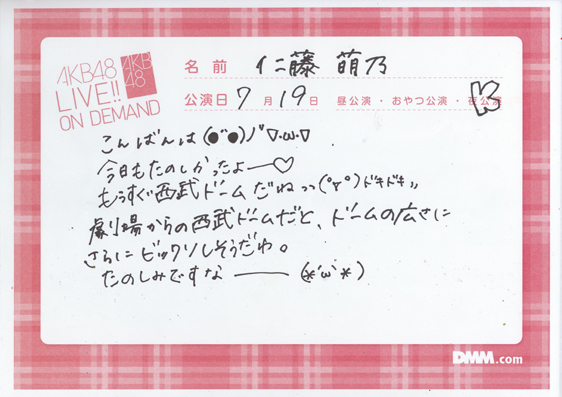 AKB48
LIVE!!
ON DEMAND
AKB
48
名前 仁藤 萌乃
公演日 7月19日 昼公演・おやつ公演・夜公演
K
こんばんは(●˘●)ﾉ"∇・ω・∇
今日もたのしかったよー♡
もうすぐ西武ドームだねっっ(°▽°)ドキドキ〃
劇場からの西武ドームだと、ドームの広さに
さらにビックリしそうだわ。
たのしみですなー (*´ω`*)
DMM.com